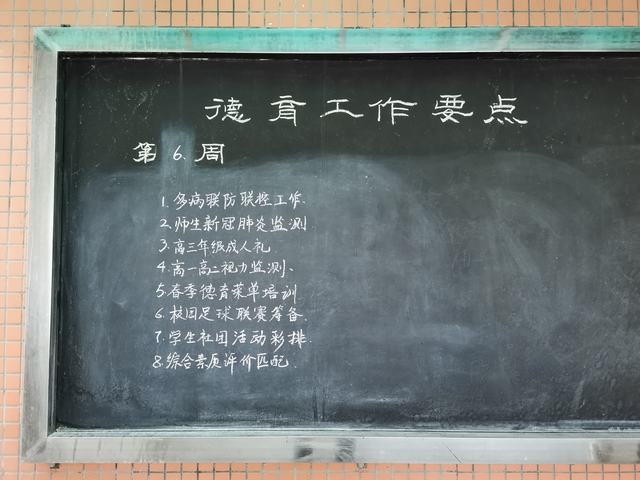 德育工作要点
第6.周
1.多病联防联控工作.
2.师生新冠肺炎监测
3.高三年级成人礼
4.高一高二视力监测、
5.春季德育菜单培训
6.校园足球联赛筹备.
7.学生社团活动彩排.
8.综合素质评价匹配.